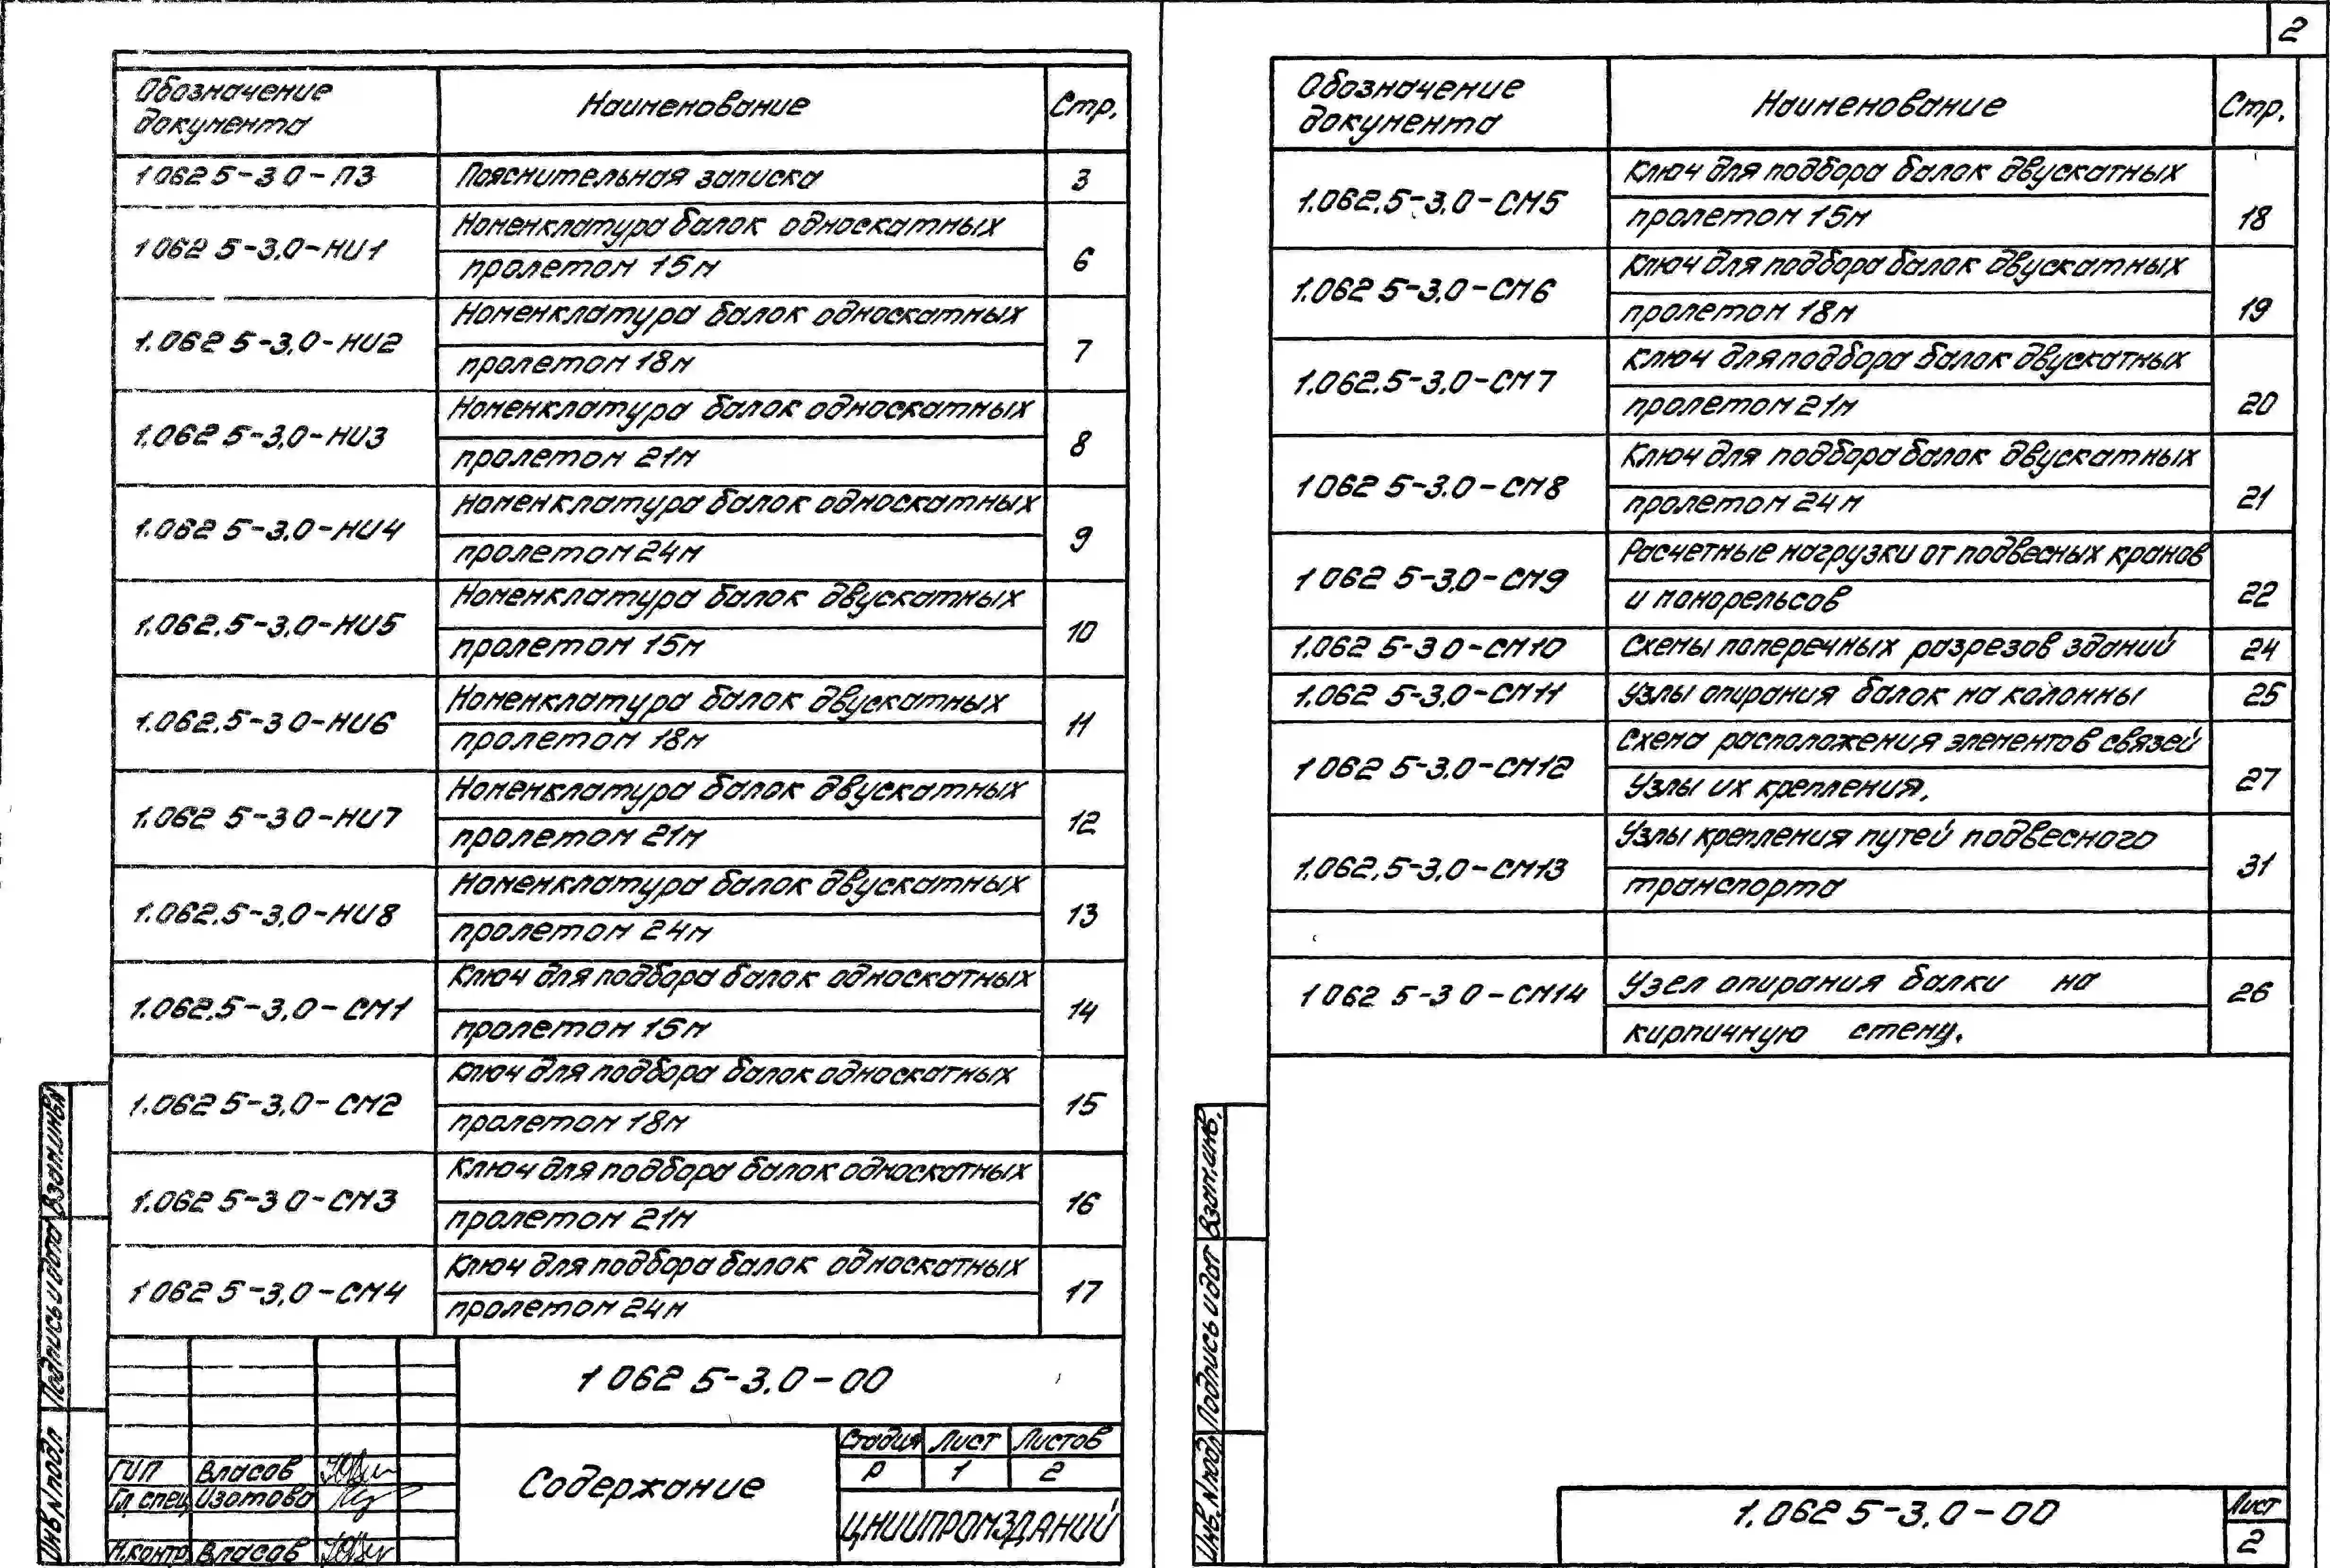 2
Обозначение документа Наименование Стр.
1 062 5-3 0-ПЗ Пояснительная записка 3
1 062 5-3,0-НИ1 Номенклатура балок односкатных
пролетом 15м 6
1.062 5-3,0-НИ2 Номенклатура балок односкатных
пролетом 18м 7
1.062 5-3,0-НИ3 Номенклатура балок односкатных
пролетом 21м 8
1.062 5-3,0-НИ4 Номенклатура балок односкатных
пролетом 24м 9
1.062.5-3,0-НИ5 Номенклатура балок двускатных
пролетом 15м 10
1.062.5-3 0-НИ6 Номенклатура балок двускатных
пролетом 18м 11
1.062 5-3 0-НИ7 Номенклатура балок двускатных
пролетом 21м 12
1.062.5-3,0-НИ8 Номенклатура балок двускатных
пролетом 24м 13
1.062.5-3,0-СМ1 Ключ для подбора балок односкатных
пролетом 15м 14
1.062 5-3,0-СМ2 Ключ для подбора балок односкатных
пролетом 18м 15
1.062 5-3 0-СМ3 Ключ для подбора балок односкатных
пролетом 21м 16
1 062 5-3,0-СМ4 Ключ для подбора балок односкатных
пролетом 24м 17
1 062 5-3.0-00
Содержание
Стадия Лист Листов
Р 1 2
ЦНИИПРОМЗДАНИЙ
ГИП Власов
Гл спец Изотова
Н.контр Власов
Инв.N подл Подпись и дата Взам.инв.N
Обозначение документа Наименование Стр.
1.062.5-3,0-СМ5 Ключ для подбора балок двускатных
пролетом 15м 18
1.062 5-3,0-СМ6 Ключ для подбора балок двускатных
пролетом 18м 19
1.062.5-3,0-СМ7 Ключ для подбора балок двускатных
пролетом 21м 20
1 062 5-3.0-СМ8 Ключ для подбора балок двускатных
пролетом 24м 21
1 062 5-3,0-СМ9 Расчетные нагрузки от подвесных кранов
и монорельсов 22
1.062 5-3 0-СМ10 Схемы поперечных разрезов зданий 24
1.062 5-3,0-СМ11 Узлы опирания балок на колонны 25
1 062 5-3.0-СМ12 Схема расположения элементов связей
Узлы их крепления. 27
1.062,5-3,0-СМ13 Узлы крепления путей подвесного
транспорта 31
1 062 5-3 0-СМ14 Узел опирания балки на
кирпичную стену. 26
Инв.N подл Подпись и дат Взам.инв.
1.062 5-3,0-00
Лист
2